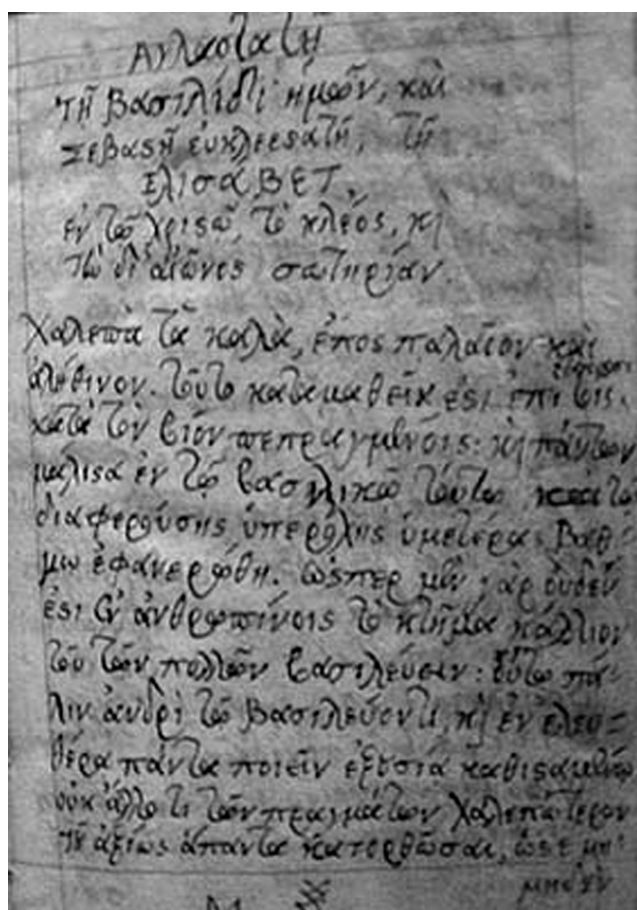 Αγλαοτάτῃ
τῇ βασιλίδι ἡμῶν, καὶ
Σεβαςῇ εὐκλεεςάτῃ, τῇ
ΕλισάΒΕΤ,
ἐν τῷ χριςῷ τὸ κλέος, κ
τὼ δι' αἰῶνος σωτηρίαν.
Χαλεπὰ τὰ καλὰ, ἔπος παλαῖον καὶ
ἀλήθινον. τοῦτο καταμαθεῖν ἐςι ἐπὶ τοῖς
κατὰ τὸν βίον πεπραγμένοις: κ πάντων
μάλιςα ἐν τῷ βασιλικῷ τούτῳ,
διαφερούσης ὑπερόχης ὑμετέρας βαθ-
μω ἐφανερώθη. ὥςπερ μὲν γὰρ οὐδὲν
ἐςι ἐν ἀνθρωπίνοις τὸ κτῆμα κάλλιον
τοῦ τῶν πολλῶν βασιλεύειν: οὕτω πά-
λιν ἀνδρὶ τῷ βασιλεύοντι, κ ἐν ἐλευ-
θέρᾳ πάντα ποιεῖν ἐξουσίᾳ καθιςαμένῳ
οὐκ ἄλλο τι τῶν πραγμάτων χαλεπώτερον
τοῦ ἀξίως ἅπαντα κατορθῶσαι, ὥςε μη-